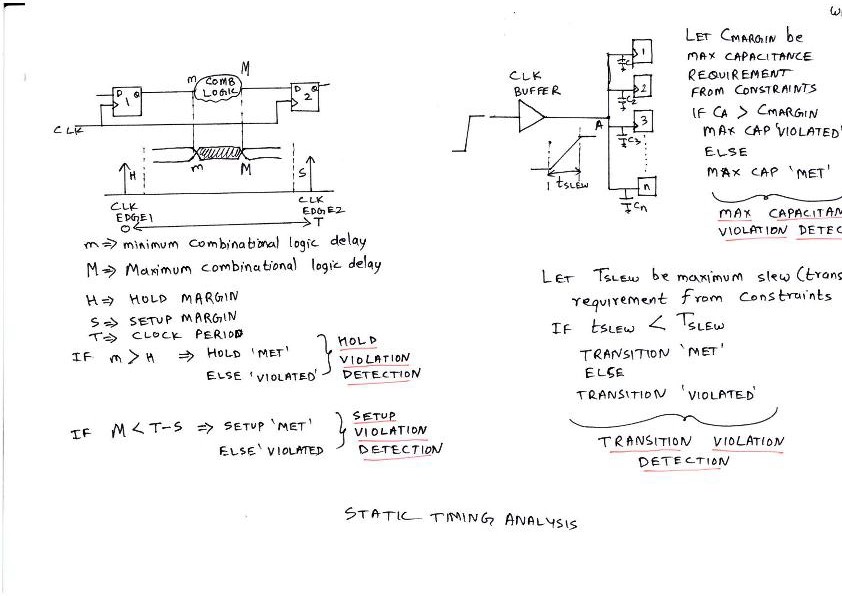 COMB
LOGIC
m
M
D
Q
1
D
Q
2
CLK
m
M
H
S
CLK
EDGE1
CLK
EDGE2
0
T
m => minimum combinational logic delay
M => Maximum combinational logic delay
H => HOLD MARGIN
S => SETUP MARGIN
T => CLOCK PERIOD
IF m > H => HOLD 'MET'
ELSE 'VIOLATED'
HOLD
VIOLATION
DETECTION
IF M < T-S => SETUP 'MET'
ELSE 'VIOLATED
SETUP
VIOLATION
DETECTION
CLK
BUFFER
A
1
C1
2
C2
3
C3
n
Cn
tSLEW
LET CMARGIN be
MAX CAPACITANCE
REQUIREMENT
FROM CONSTRAINTS
IF CA > CMARGIN
MAX CAP 'VIOLATED'
ELSE
MAX CAP 'MET'
MAX CAPACITAN
VIOLATION DETEC
LET TSLEW be maximum slew (trans
requirement from constraints
IF tSLEW < TSLEW
TRANSITION 'MET'
ELSE
TRANSITION 'VIOLATED'
TRANSITION VIOLATION
DETECTION
STATIC TIMING ANALYSIS